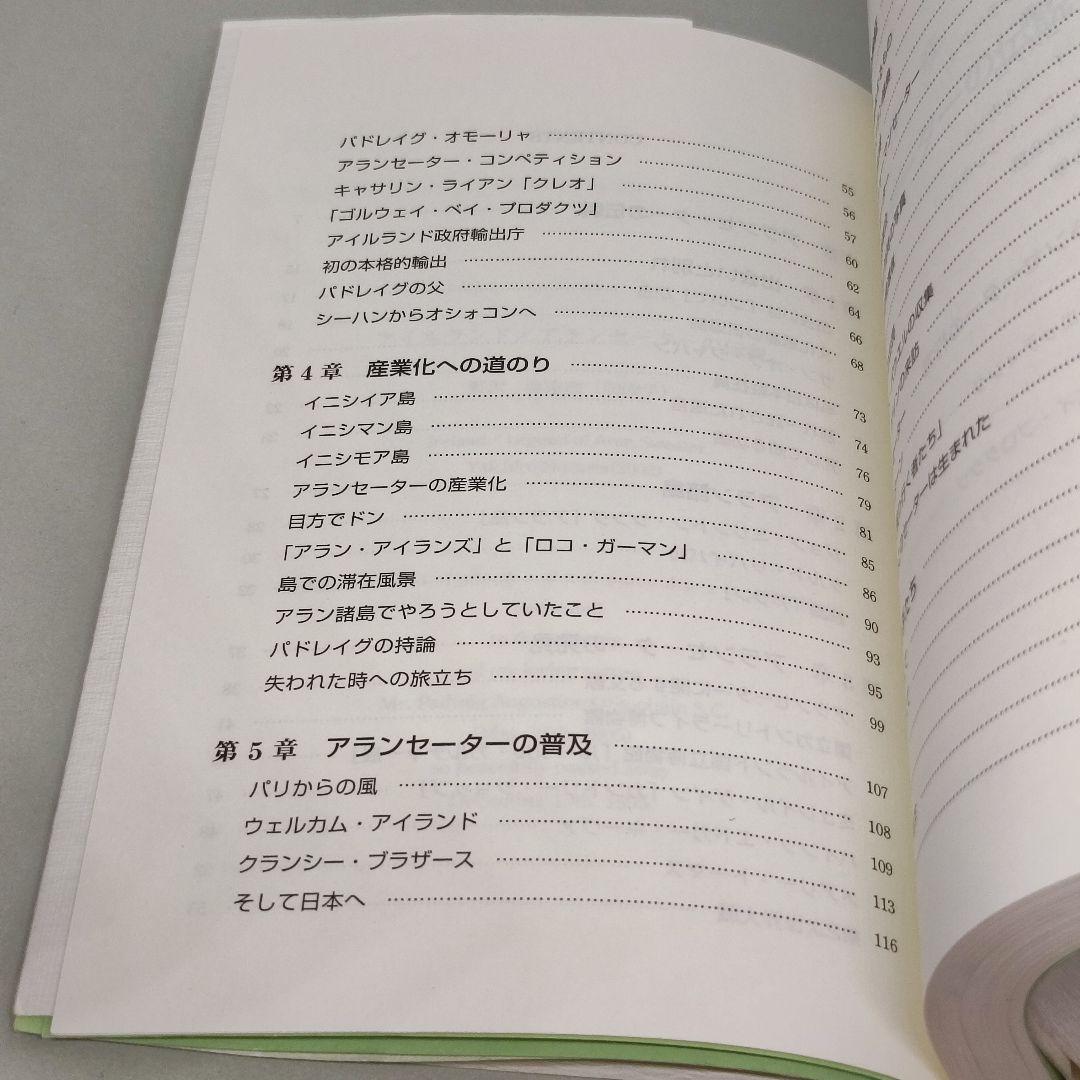 パドレイグ・オモーリャ 55
アランセーター・コンペティション 56
キャサリン・ライアン「クレオ」 57
「ゴルウェイ・ベイ・プロダクツ」 60
アイルランド政府輸出庁 62
初の本格的輸出 64
パドレイグの父 66
シーハンからオシォコンへ 68
第4章 産業化への道のり 73
イニシイア島 74
イニシマン島 76
イニシモア島 79
アランセーターの産業化 81
目方でドン 85
「アラン・アイランズ」と「ロコ・ガーマン」 86
島での滞在風景 90
アラン諸島でやろうとしていたこと 93
パドレイグの持論 95
失われた時への旅立ち 99
第5章 アランセーターの普及 107
パリからの風 108
ウェルカム・アイランド 109
クランシー・ブラザース 113
そして日本へ 116
の収集
の来訪
く者たち」
ーターは生まれた